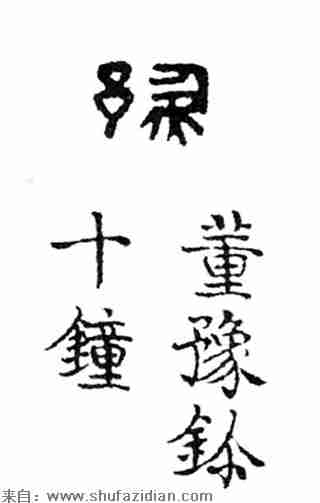 豫
董豫鉩
十鐘
来自：www.shufazidian.com